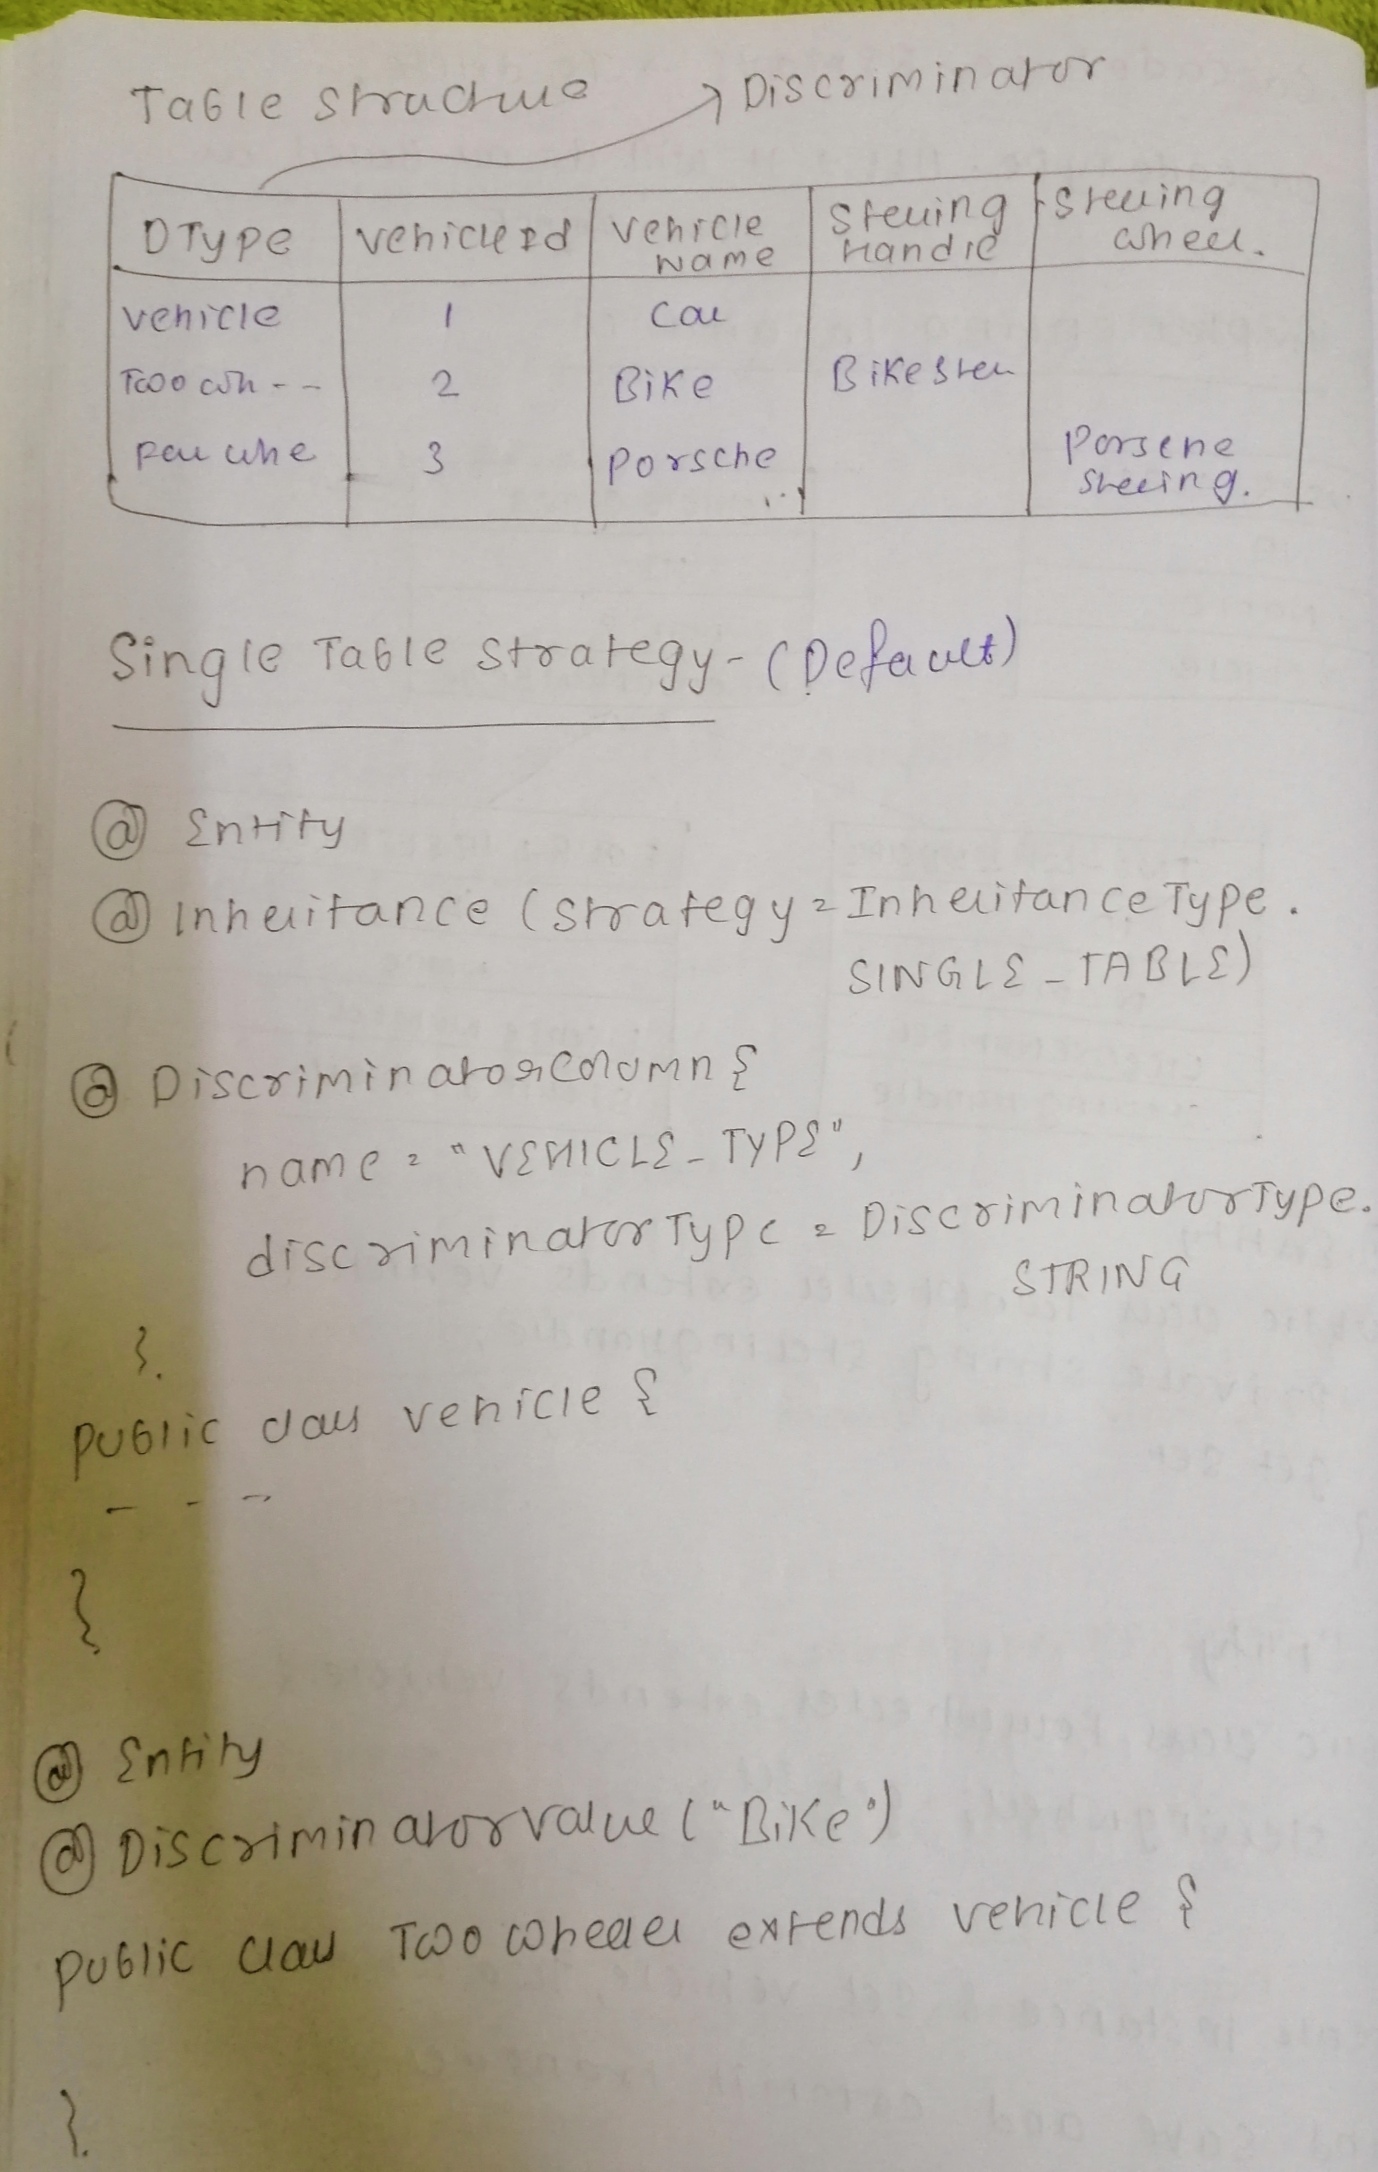 Table Structure → Discriminator
DType | VehicleId | Vehicle Name | Steering Handle | Steering Wheel.
Vehicle | 1 | Car
Two wh - - | 2 | Bike | Bike Steer
Four whe | 3 | Porsche | Porsche Steering.
Single Table Strategy - (Default)
@ Entity
@ Inheritance (strategy = InheritanceType.
SINGLE_TABLE)
@ DiscriminatorColumn {
name = "VEHICLE_TYPE",
discriminatorType = DiscriminatorType.
STRING
}.
Public class vehicle {
- - -
}
@ Entity
@ DiscriminatorValue ("Bike")
public class TwoWheeler extends vehicle {
}.